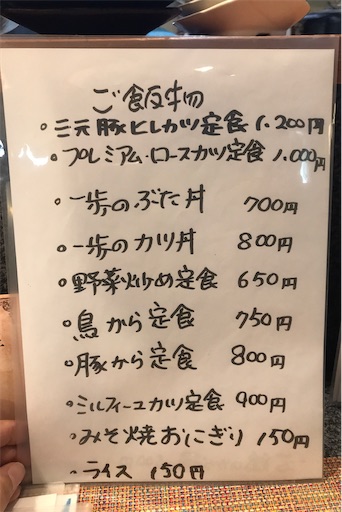 ご飯物
。三元豚ヒレカツ定食 1.200円
。プレミアム・ロースカツ定食 1.000円
。一歩のぶた丼 700円
。一歩のカツ丼 800円
。野菜炒め定食 650円
。鳥から定食 750円
。豚から定食 800円
。ミルフィーユカツ定食 900円
。みそ焼おにぎり 150円
。ライス 150円